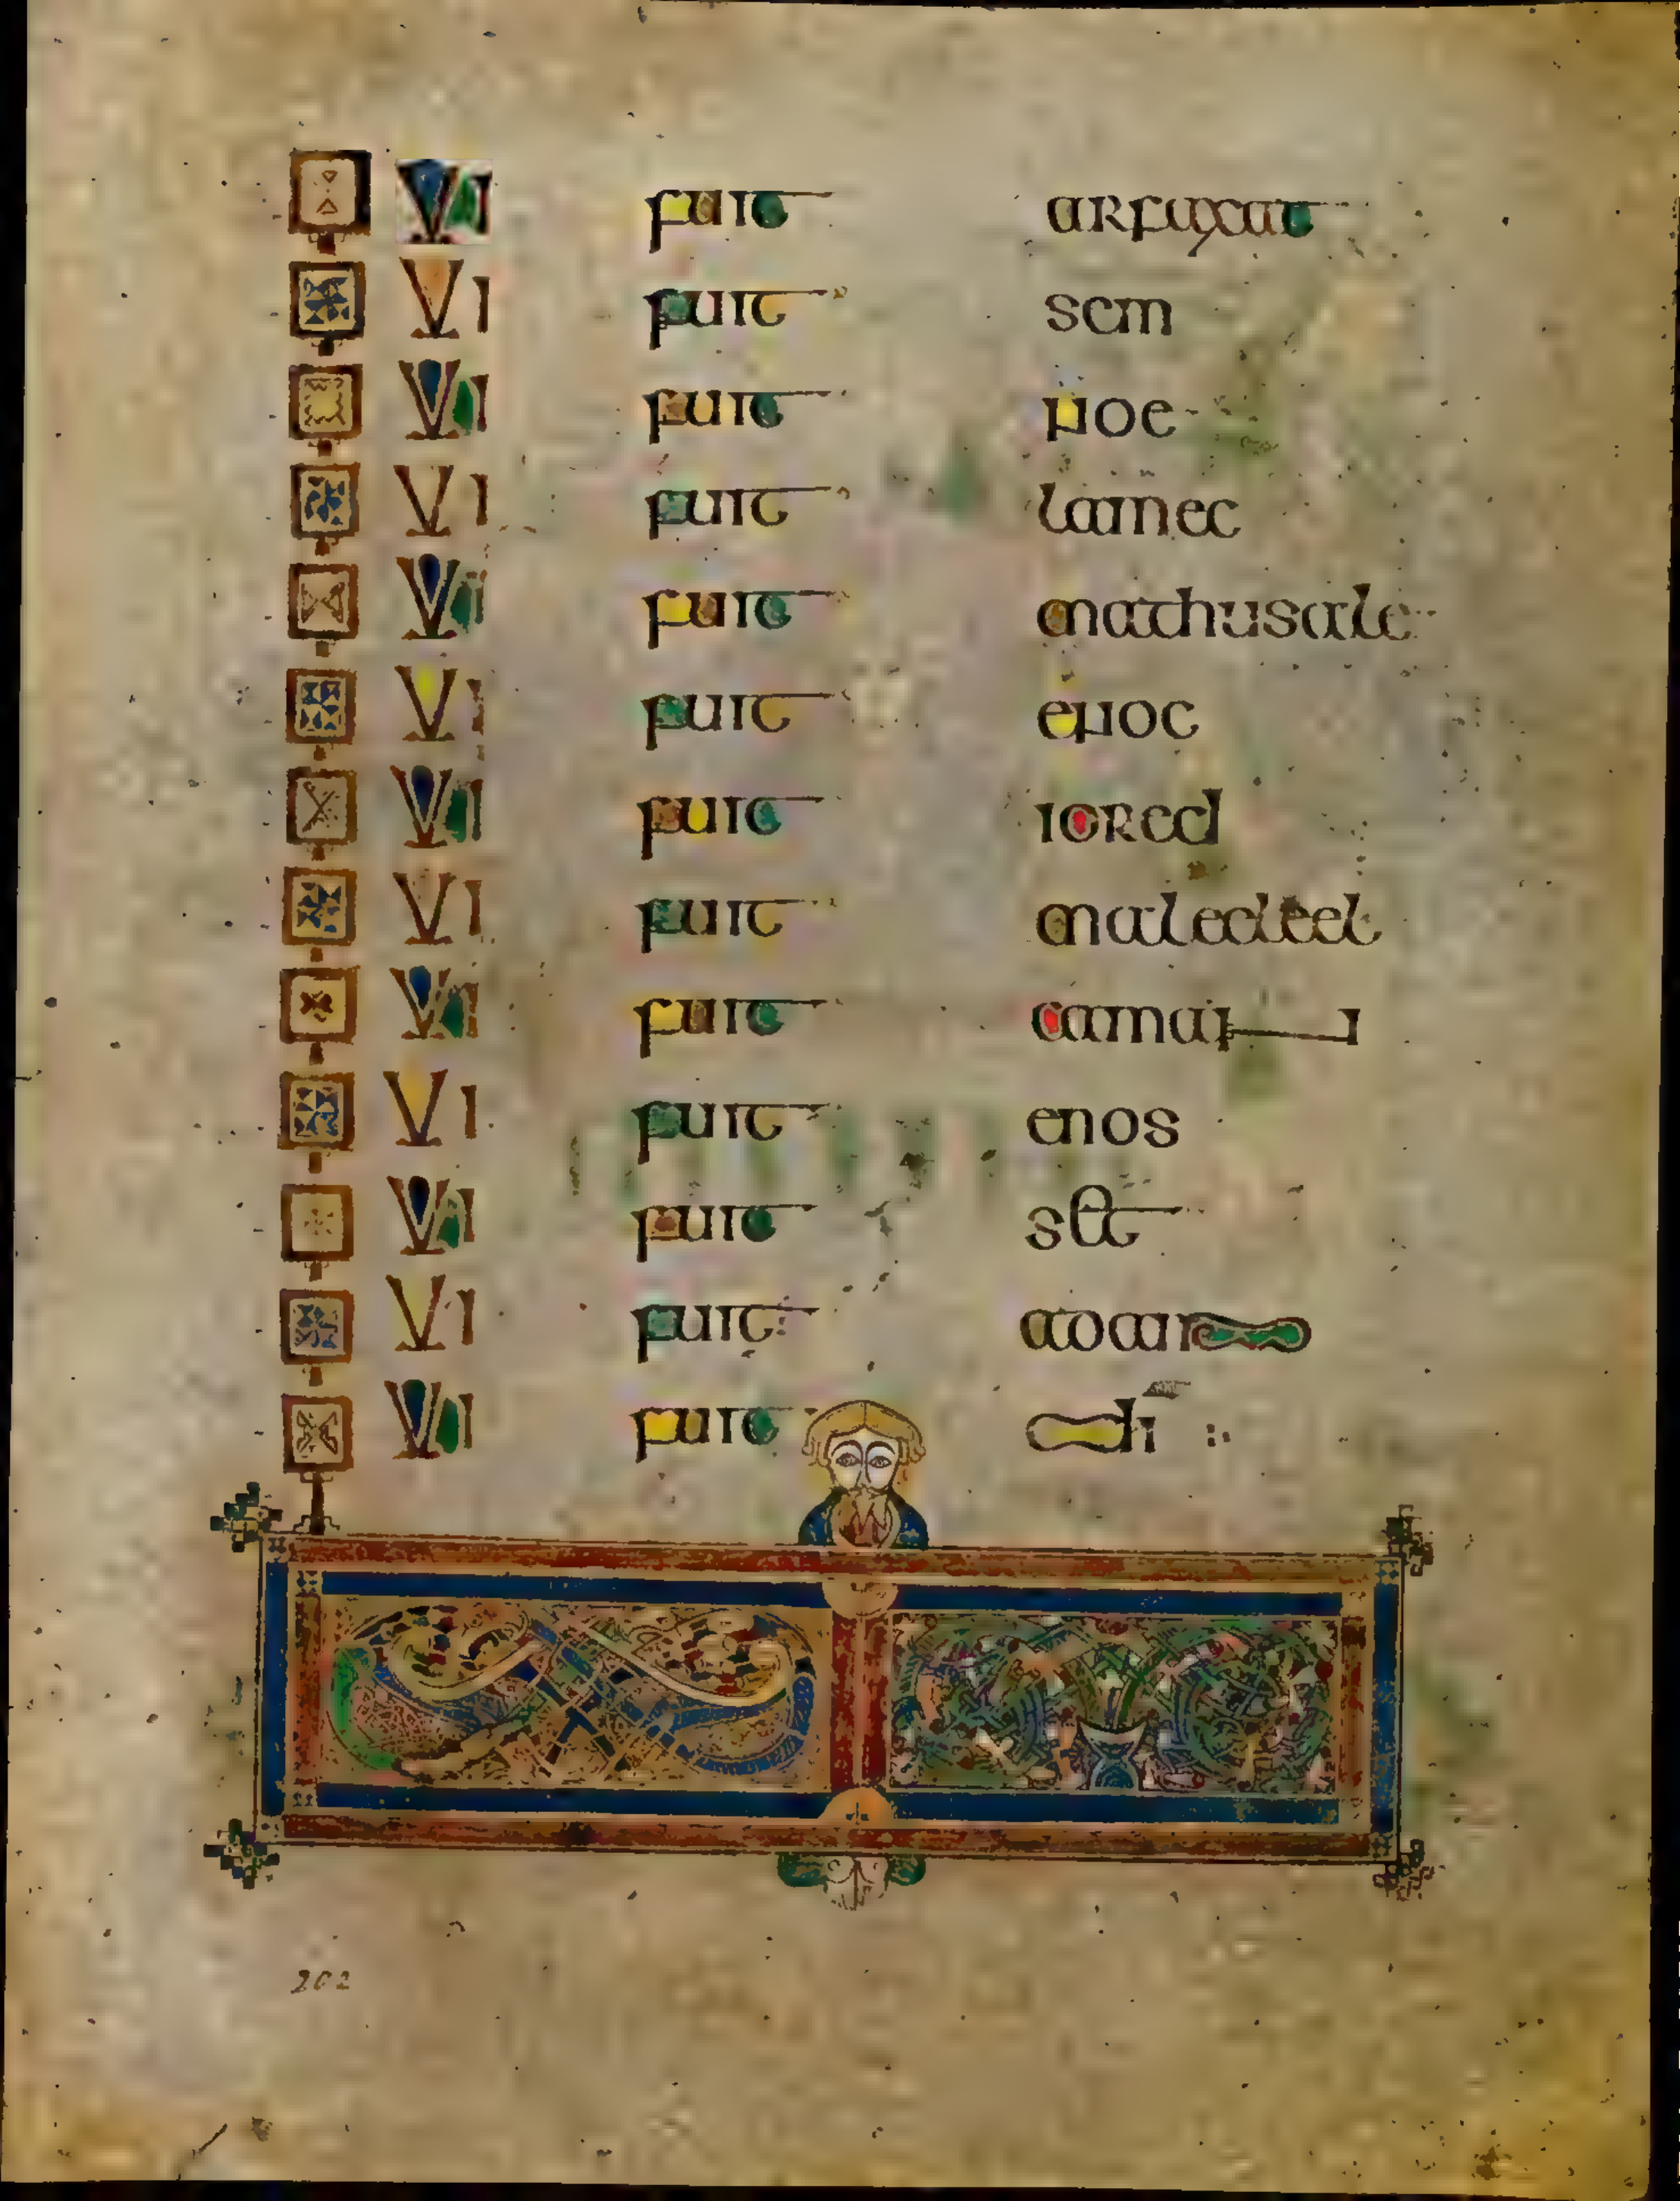 QVI fuit arfaxat
QVI fuit sem
QVI fuit noe
QVI fuit lamec
QVI fuit mathusale
QVI fuit enoc
QVI fuit iared
QVI fuit maleleel
QVI fuit cainan
QVI fuit enos
QVI fuit set
QVI fuit adam
QVI fuit di
202